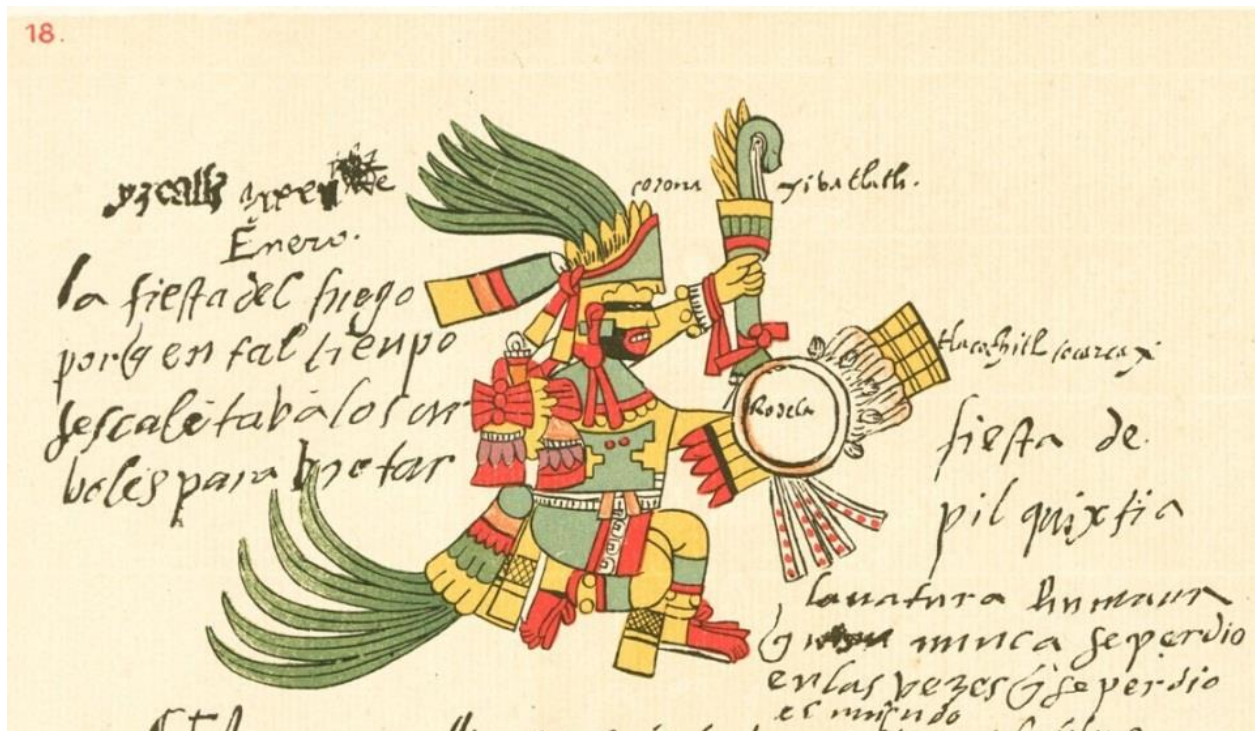 18.
yzcalli
Enero.
la fiesta del fuego
porq en tal tienpo
sescalētabā los ar
boles para brotar
corona
xibatlatli.
tlacochitl
Rodela
fiesta de
pilquixtia
la natura humana
q nunca se perdio
en las vezes q se perdio
el mūndo